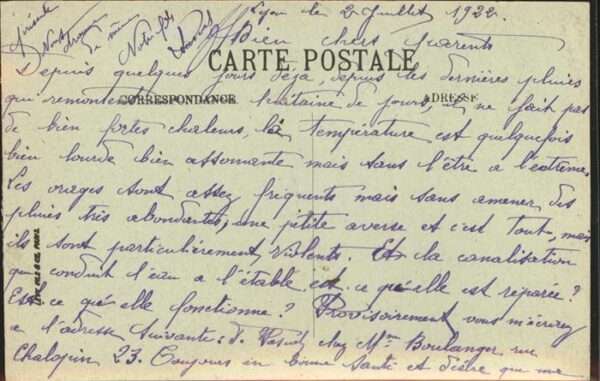 Lyon le 2 Juillet 1922.
Bien chers parents
CARTE POSTALE
CORRESPONDANCE
ADRESSE
Depuis quelques jours déjà, depuis les dernières pluies
qui remontent huitaine de jours, il ne fait pas
de bien fortes chaleurs, la température est quelquefois
bien lourde bien assomante mais sans l'être a l'extrême.
Les orages sont assez fréquents mais sans amener des
pluies très abondantes, une petite averse et c'est tout, mais
ils sont particulièrement violents. Et la canalisation
qui conduit l'eau a l'étable est ce qu'elle est réparée?
Est ce qu'elle fonctionne? Provisoirement vous m'écrirez
a l'adresse suivante: chez Mme Boulanger rue
Chalopin 23. Toujours en bonne santé et désire que me